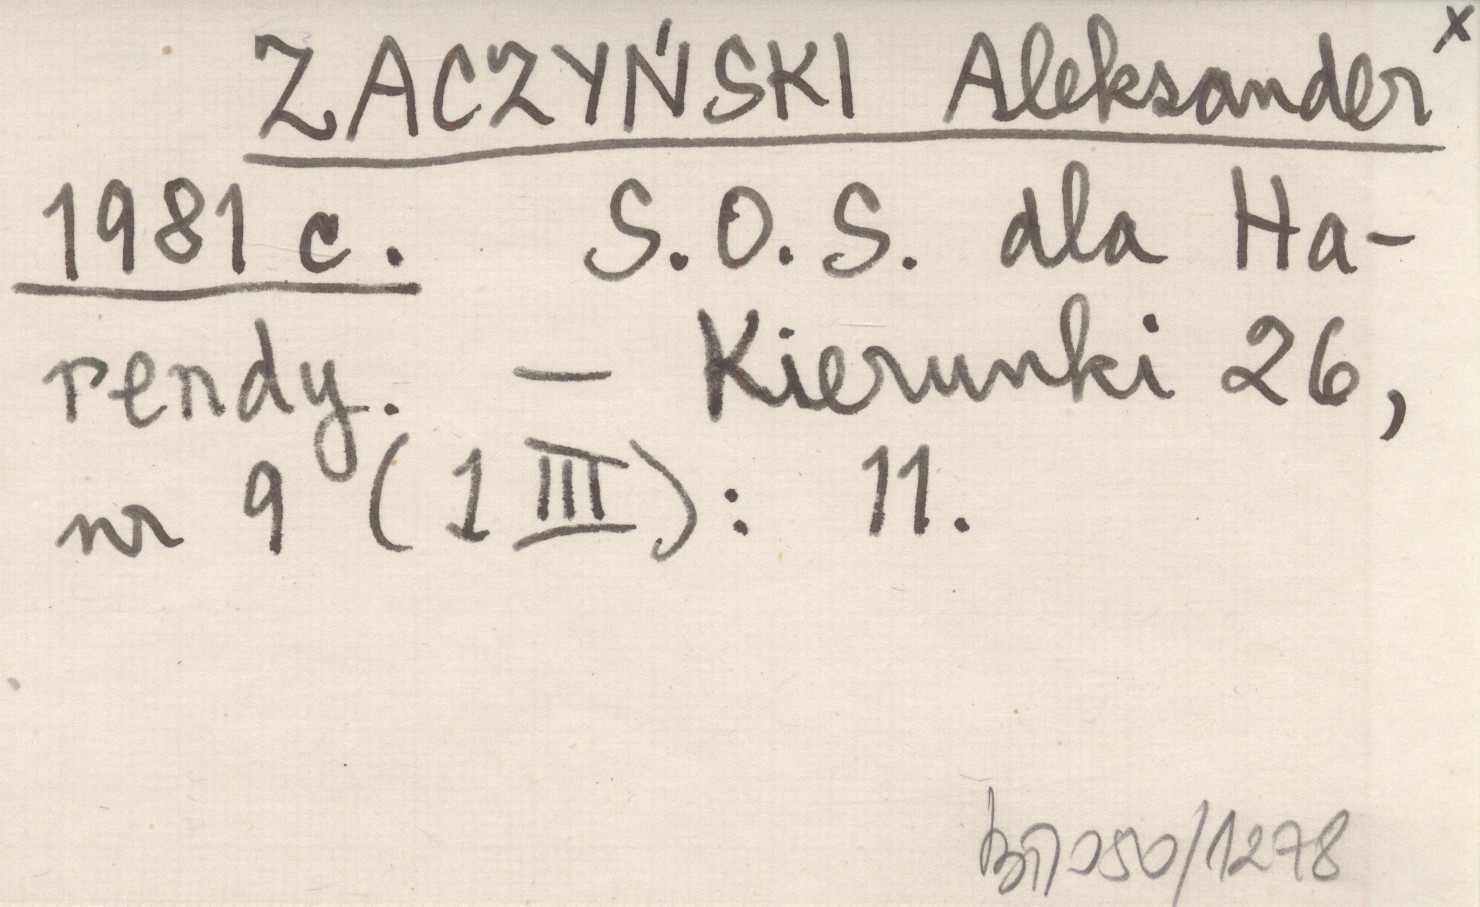 ZACZYŃSKI Aleksander x
1981 c. S.O.S. dla Ha-
rendy. — Kierunki 26,
nr 9 (1 III): 11.
050/1278